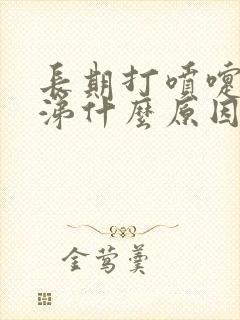 長期打噴嚏
涕什麼原因
金鶯羹